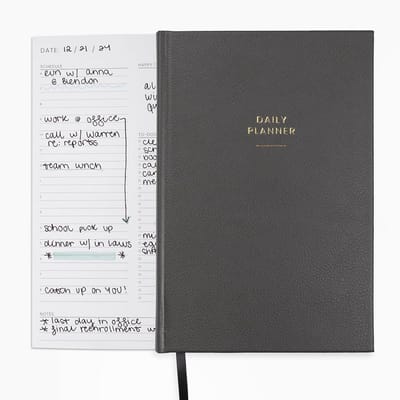 DATE: 12/21/24
run w/ anna
@ Brendon
work @ office
call w/ Warren
re: reports
team lunch
school pick up
dinner w/ in laws
* *
catch up on YOU!
NOTES
* last day in office
* final reenrollment w
HAPPY
al
wi
gu
TO-DO
cle
sch
boo
cal
can
me
mi
egg
sh
DAILY
PLANNER